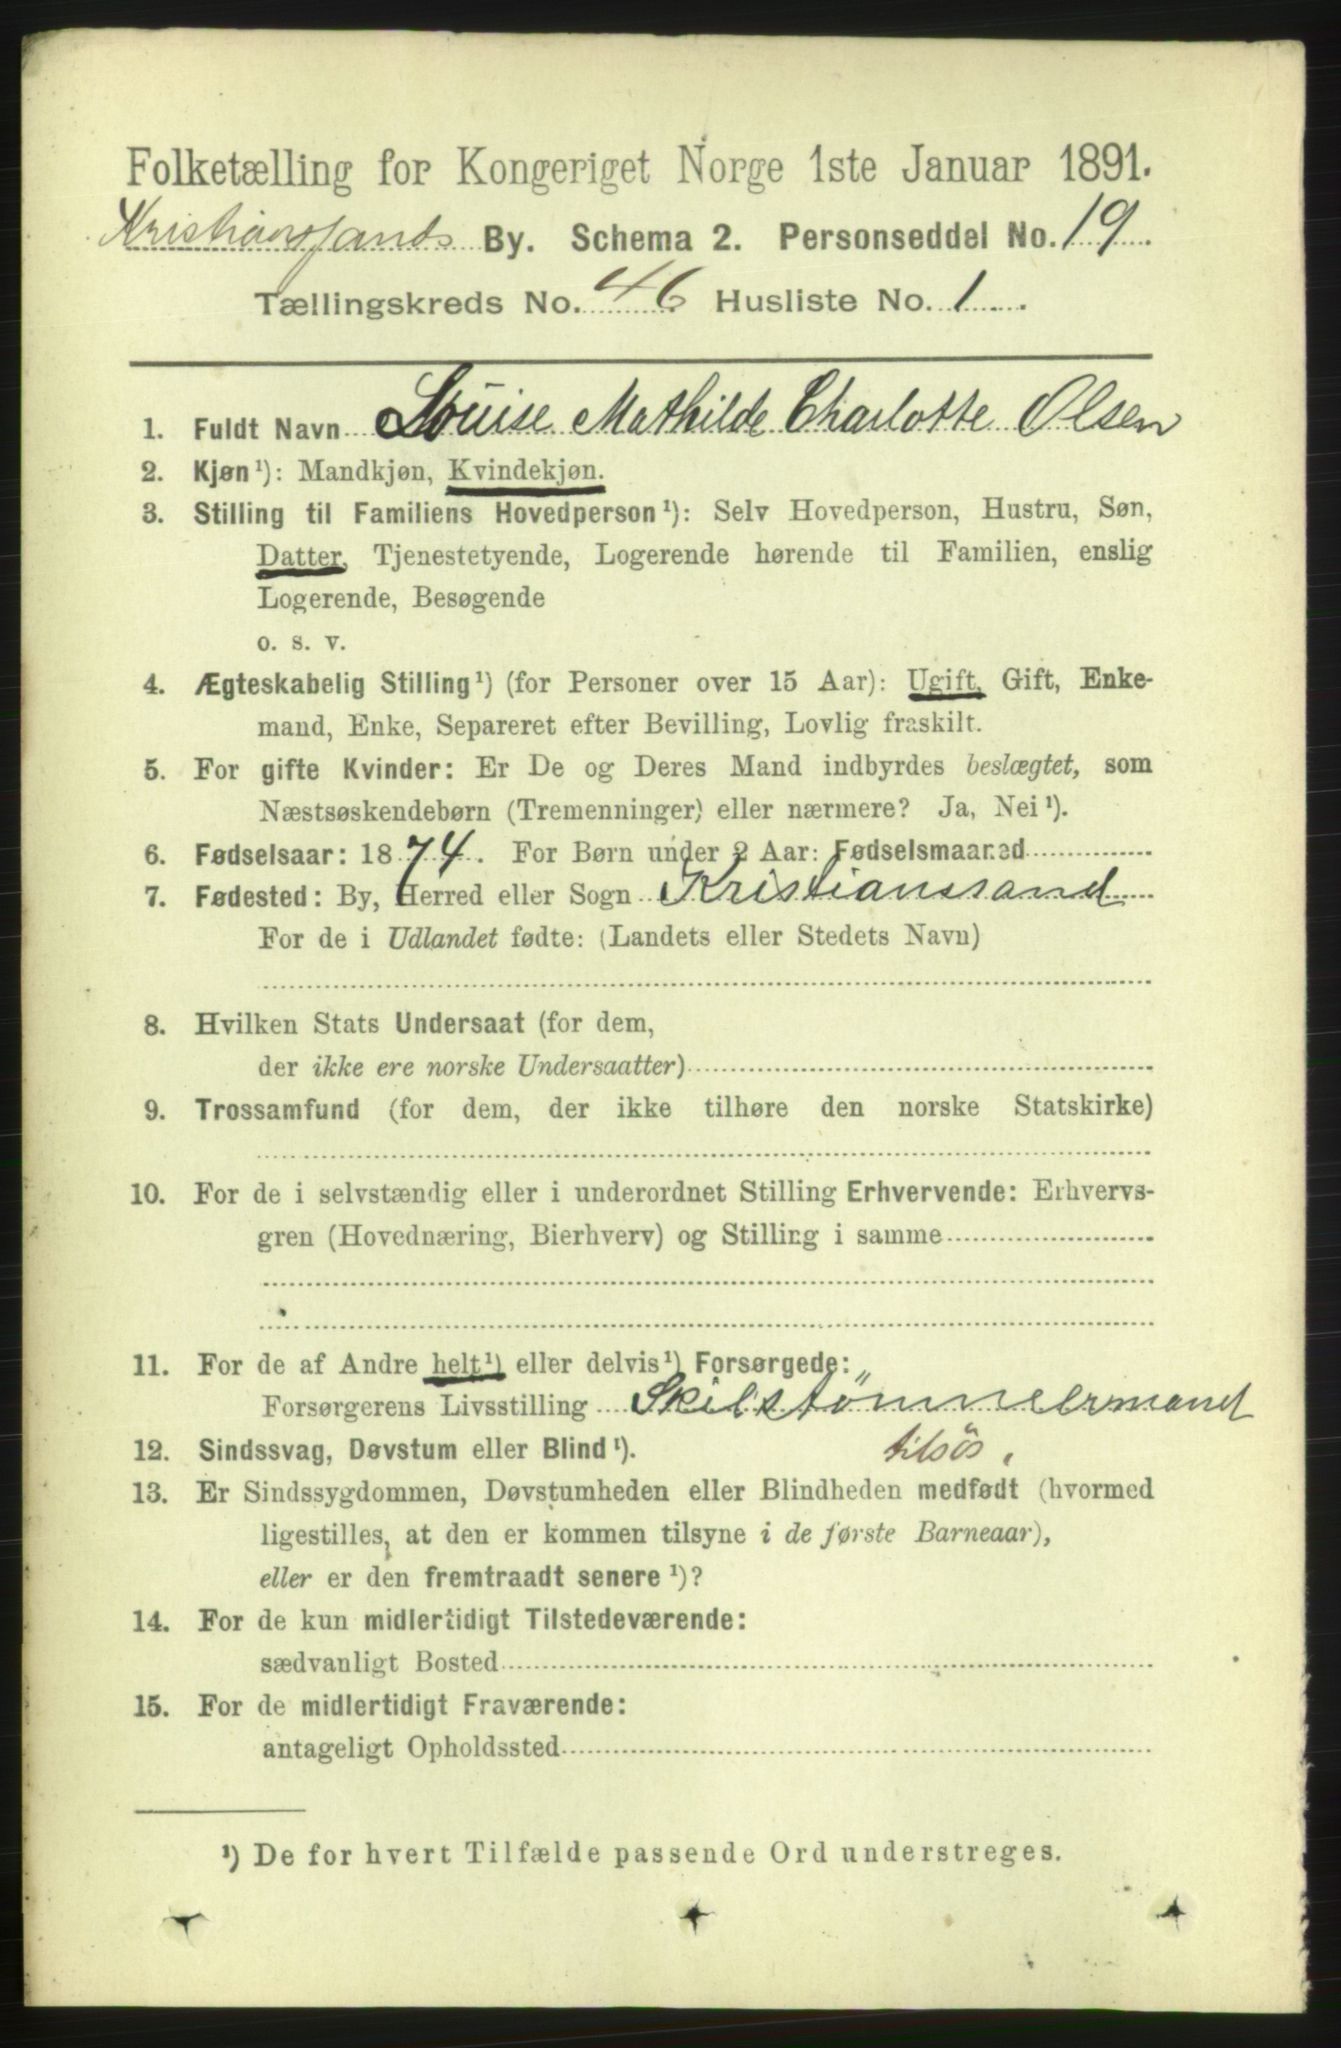 Folketælling for Kongeriget Norge 1ste Januar 1891.
Kristianssands By. Schema 2. Personseddel No. 19
Tællingskreds No. 46 Husliste No. 1
1. Fuldt Navn Louise Mathilde Charlotte Olsen
2. Kjøn¹): Mandkjøn, Kvindekjøn.
3. Stilling til Familiens Hovedperson¹): Selv Hovedperson, Hustru, Søn,
Datter, Tjenestetyende, Logerende hørende til Familien, enslig
Logerende, Besøgende
o. s. v.
4. Ægteskabelig Stilling¹) (for Personer over 15 Aar): Ugift, Gift, Enke-
mand, Enke, Separeret efter Bevilling, Lovlig fraskilt.
5. For gifte Kvinder: Er De og Deres Mand indbyrdes beslægtet, som
Næstsøskendebørn (Tremenninger) eller nærmere? Ja, Nei¹).
6. Fødselsaar: 1874. For Børn under 2 Aar: Fødselsmaaned
7. Fødested: By, Herred eller Sogn Kristianssand
For de i Udlandet fødte: (Landets eller Stedets Navn)
8. Hvilken Stats Undersaat (for dem,
der ikke ere norske Undersaatter)
9. Trossamfund (for dem, der ikke tilhøre den norske Statskirke)
10. For de i selvstændig eller i underordnet Stilling Erhvervende: Erhvervs-
gren (Hovednæring, Bierhverv) og Stilling i samme
11. For de af Andre helt¹) eller delvis¹) Forsørgede:
Forsørgerens Livsstilling Skibstömmermand
12. Sindssvag, Døvstum eller Blind¹). tilsös.
13. Er Sindssygdommen, Døvstumheden eller Blindheden medfødt (hvormed
ligestilles, at den er kommen tilsyne i de første Barneaar),
eller er den fremtraadt senere¹)?
14. For de kun midlertidigt Tilstedeværende:
sædvanligt Bosted
15. For de midlertidigt Fraværende:
antageligt Opholdssted
¹) De for hvert Tilfælde passende Ord understreges.